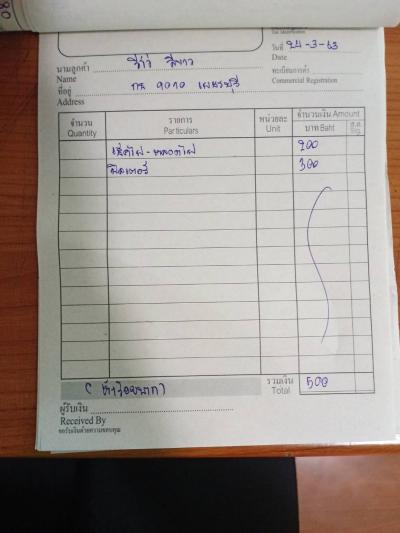 Tax Identification
วันที่ 24-3-63
Date
นามลูกค้า วีโก้ สีขาว
Name
ทะเบียนการค้า
Commercial Registration
ที่อยู่ กน 9090 เพชรบุรี
Address
จำนวน
Quantity
รายการ
Particulars
หน่วยละ
Unit
จำนวนเงิน Amount
บาท Baht
ส.ต.
Stg.
200
300
(ห้าร้อยบาท)
รวมเงิน
Total
500
ผู้รับเงิน
Received By
ขอรับเงินด้วยความขอบคุณ